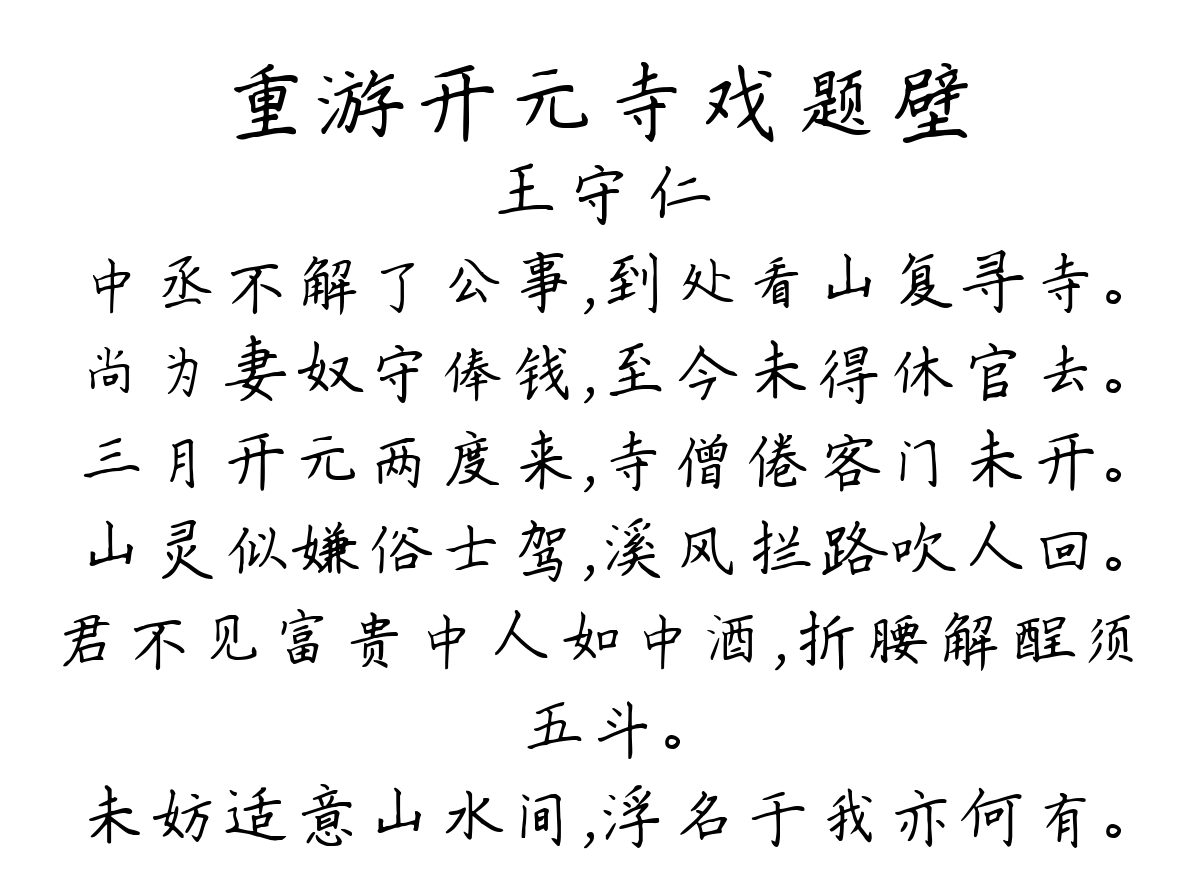 重游开元寺戏题壁
王守仁
中丞不解了公事,到处看山复寻寺。
尚为妻奴守俸钱,至今未得休官去。
三月开元两度来,寺僧倦客门未开。
山灵似嫌俗士驾,溪风拦路吹人回。
君不见富贵中人如中酒,折腰解酲须
五斗。
未妨适意山水间,浮名于我亦何有。